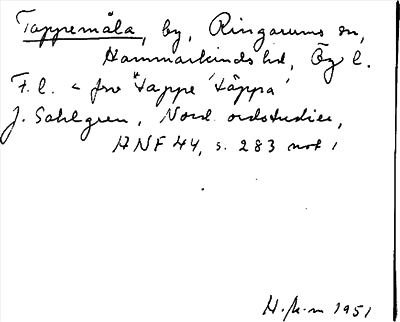 Tappemåla, by, Ringarums sn,
Hammarkinds hd, Ög l.
F.l. < fno *tappe 'täppa'
J. Sahlgren, Nord. ordstudier,
ANF 44, s. 283 not 1
1951